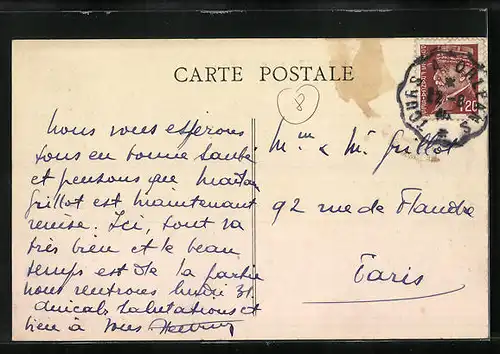 CARTE POSTALE
8
TOURS A ORLEANS
20
Nous vous espérons
tous en bonne santé
et pensons que
Grillot est maintenant
remise. Ici, tout va
très bien et le beau
temps est de la partie
nous rentrons lundi 31.
Amicales salutations et
bien à vous
Mme & Mr. Grillot
92 rue de Flandre
Paris